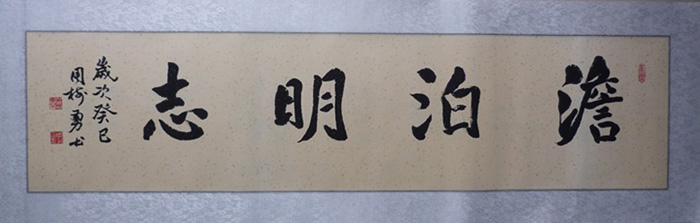 澹泊明志
歲次癸巳
周樹勇书